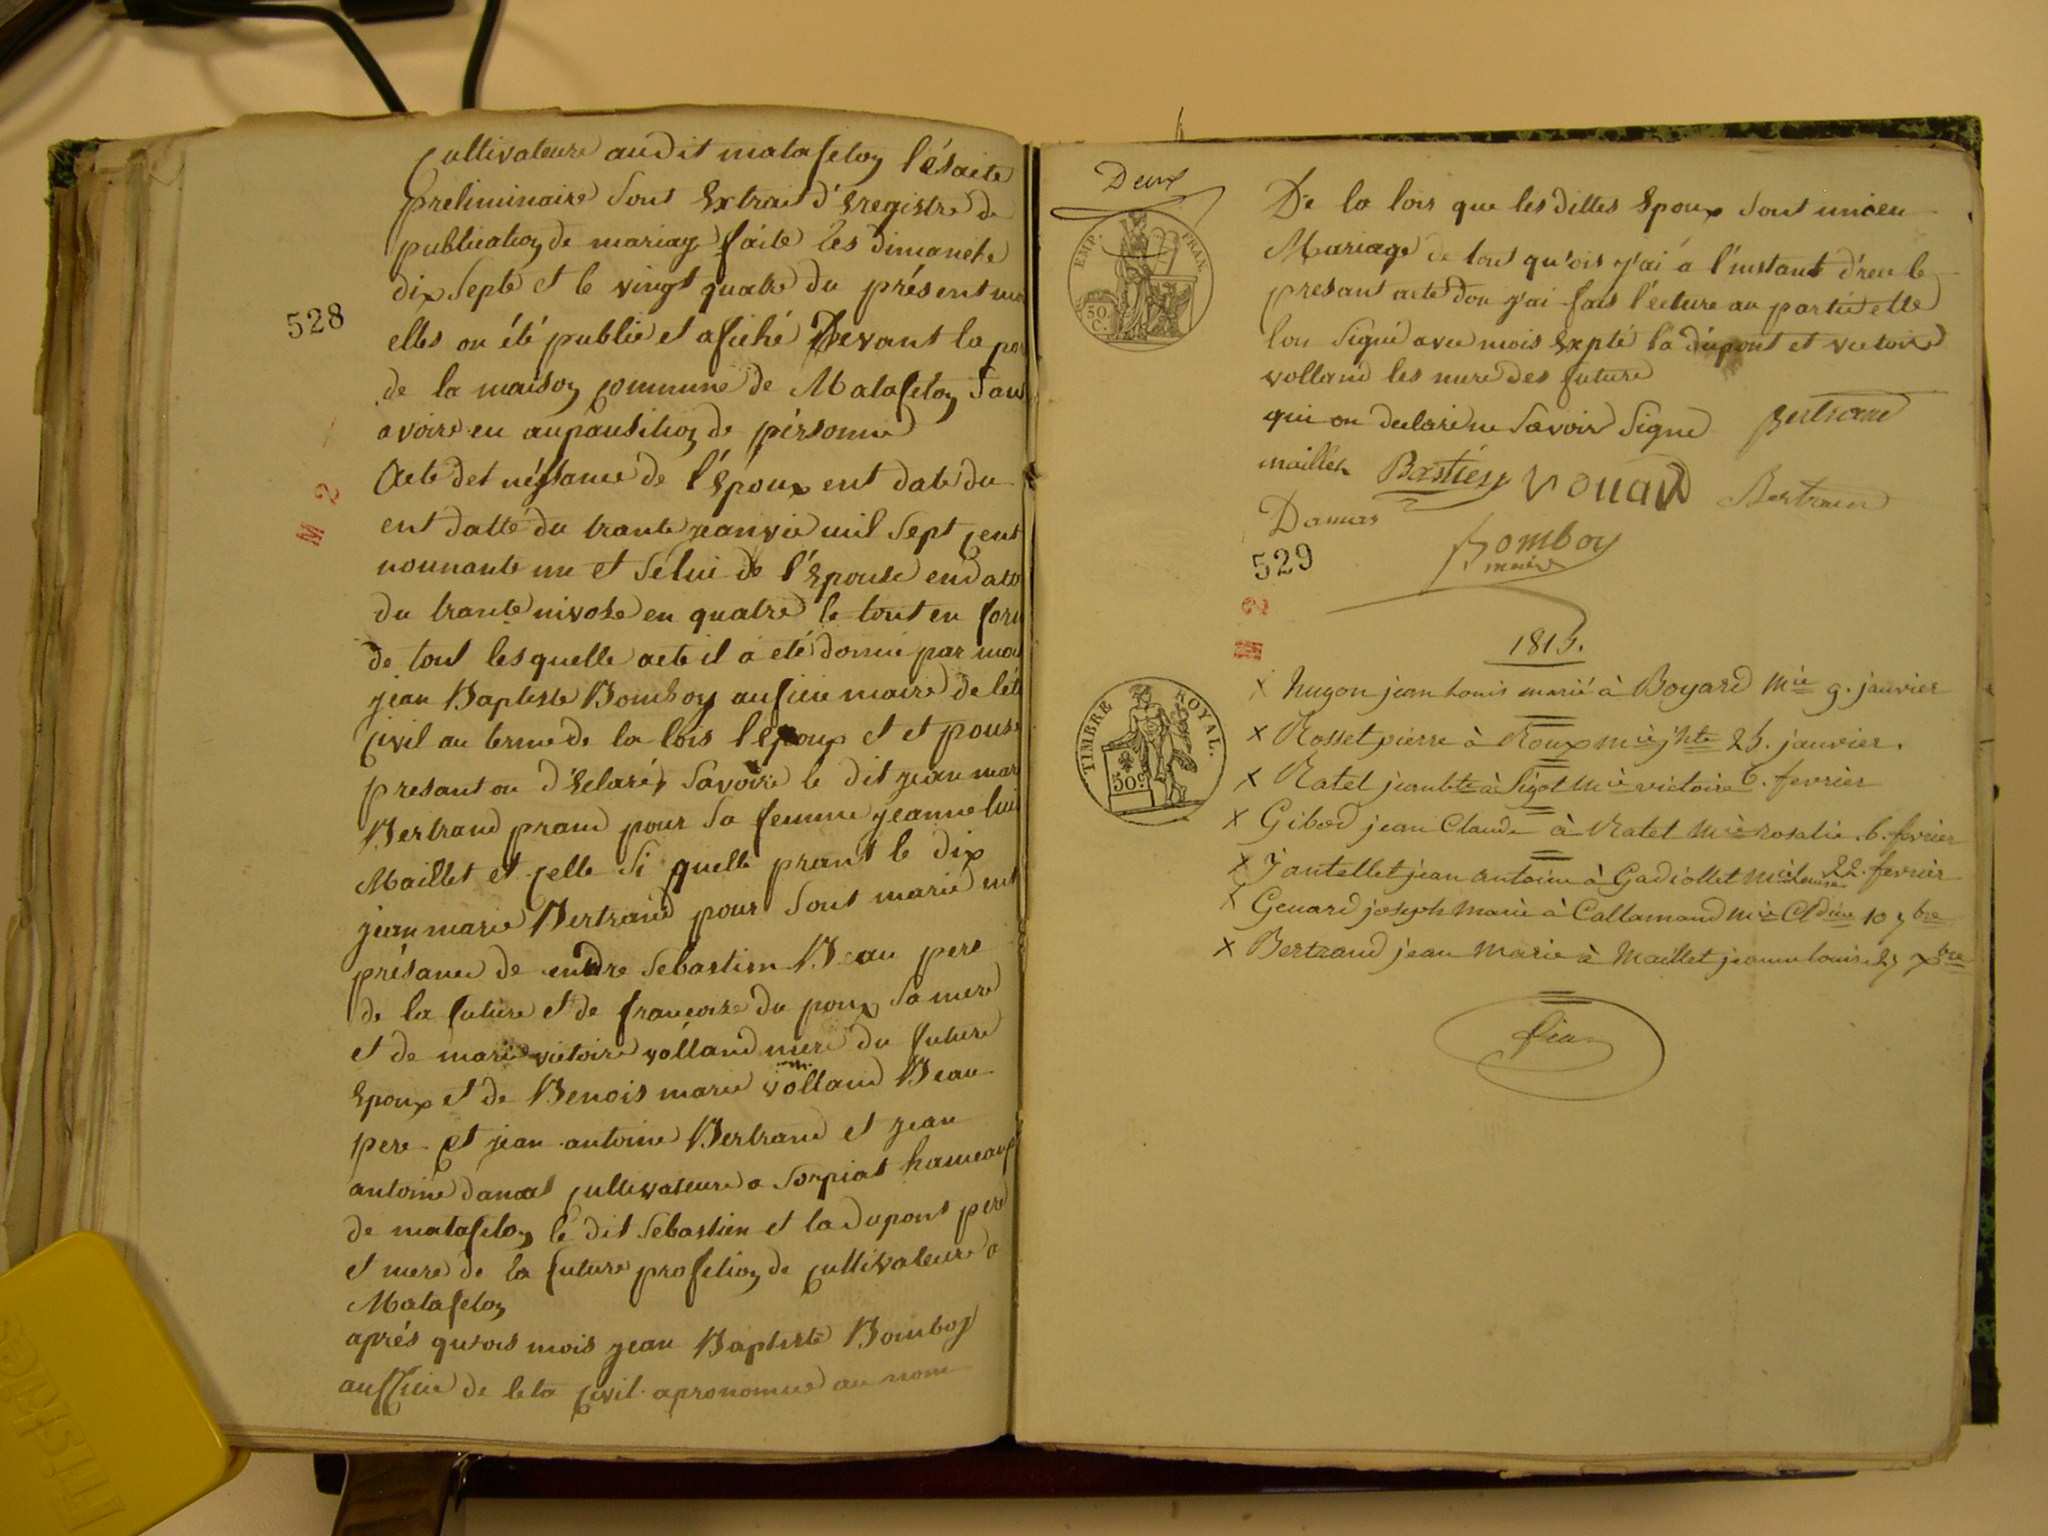 cultivateure audit matafelon lésaite
preliminaire sont Extrai d'Eregistre de
publication de mariage faite les dimanche
dix septe et le vingt quatre du présent
528
elles on été publié et afiché Devant la
de la maison commune de Matafelon
avoire eu aupausition de pérsonne
Acte det néssance de l'Epoux ent date du
M 2
ent datté du trante jeanvié mil sept cent
nonnante un et sélui de l'Epouse en date
du trante nivose en quatre le tout en
de tout les quelle acte il a eté donné par
jean Baptiste Bomboy auficié maire de
civil au terme de la lois l'Epoux et et
presant on d'Eclaré savoire le dit jean
Bertrand prand pour sa femme jeanne
Maillet et celle si quelle prant le dix
jean marie Bertrand pour sont marié
présance de endre Sebastien Beau pere
de la future et de francoise du poux sa mere
et de marie victoire volland mere du future
Epoux et de Benois marie volland Beau
pere et jean antoine Bertrand et jean
antoine damas cultivateure a Sorpiat hameaux
de matafelon le dit Sebastien et la dupont pere
et mere de la future profetion de cultivateure a
Matafelon
aprés qu'ois mois jean Baptiste Bomboy
aufficié de leta civil apronomcé au nom
Deux
EMP. FRAN.
50. C.
De la lois que les dittes Epoux sont unieu
Mariage de tout qu'ois j'ai a l'instant d'reu le
presant acte don j'ai fais l'ecture au partie elle
lon signé avec mois Expté la dupont et victoire
volland les mere des future
qui on declaré ne savoir signé Bertrand
maillet Bastien vouand Bertrand
Damas
Bomboy
maire
529
M 2
1815.
TIMBRE ROYAL.
50c
x hugon jean Louis marié à Boyard Mie 9. janvier
x Rosset pierre à Roux Mie jhte 25. janvier.
x Ratel jean bte à Sigot Mie victoire 6. fevrier
x Gibod jean Claude à Ratel Mie rosalie. 6. fevrier
x Jantellet jean antoine à Gadiollet Mie Louise 22. fevrier
x Genard joseph Marie à Callamand Mie Cldine 10 7bre
x Bertrand jean Marie à Maillet jeanne Louise 27 Xbre
fin